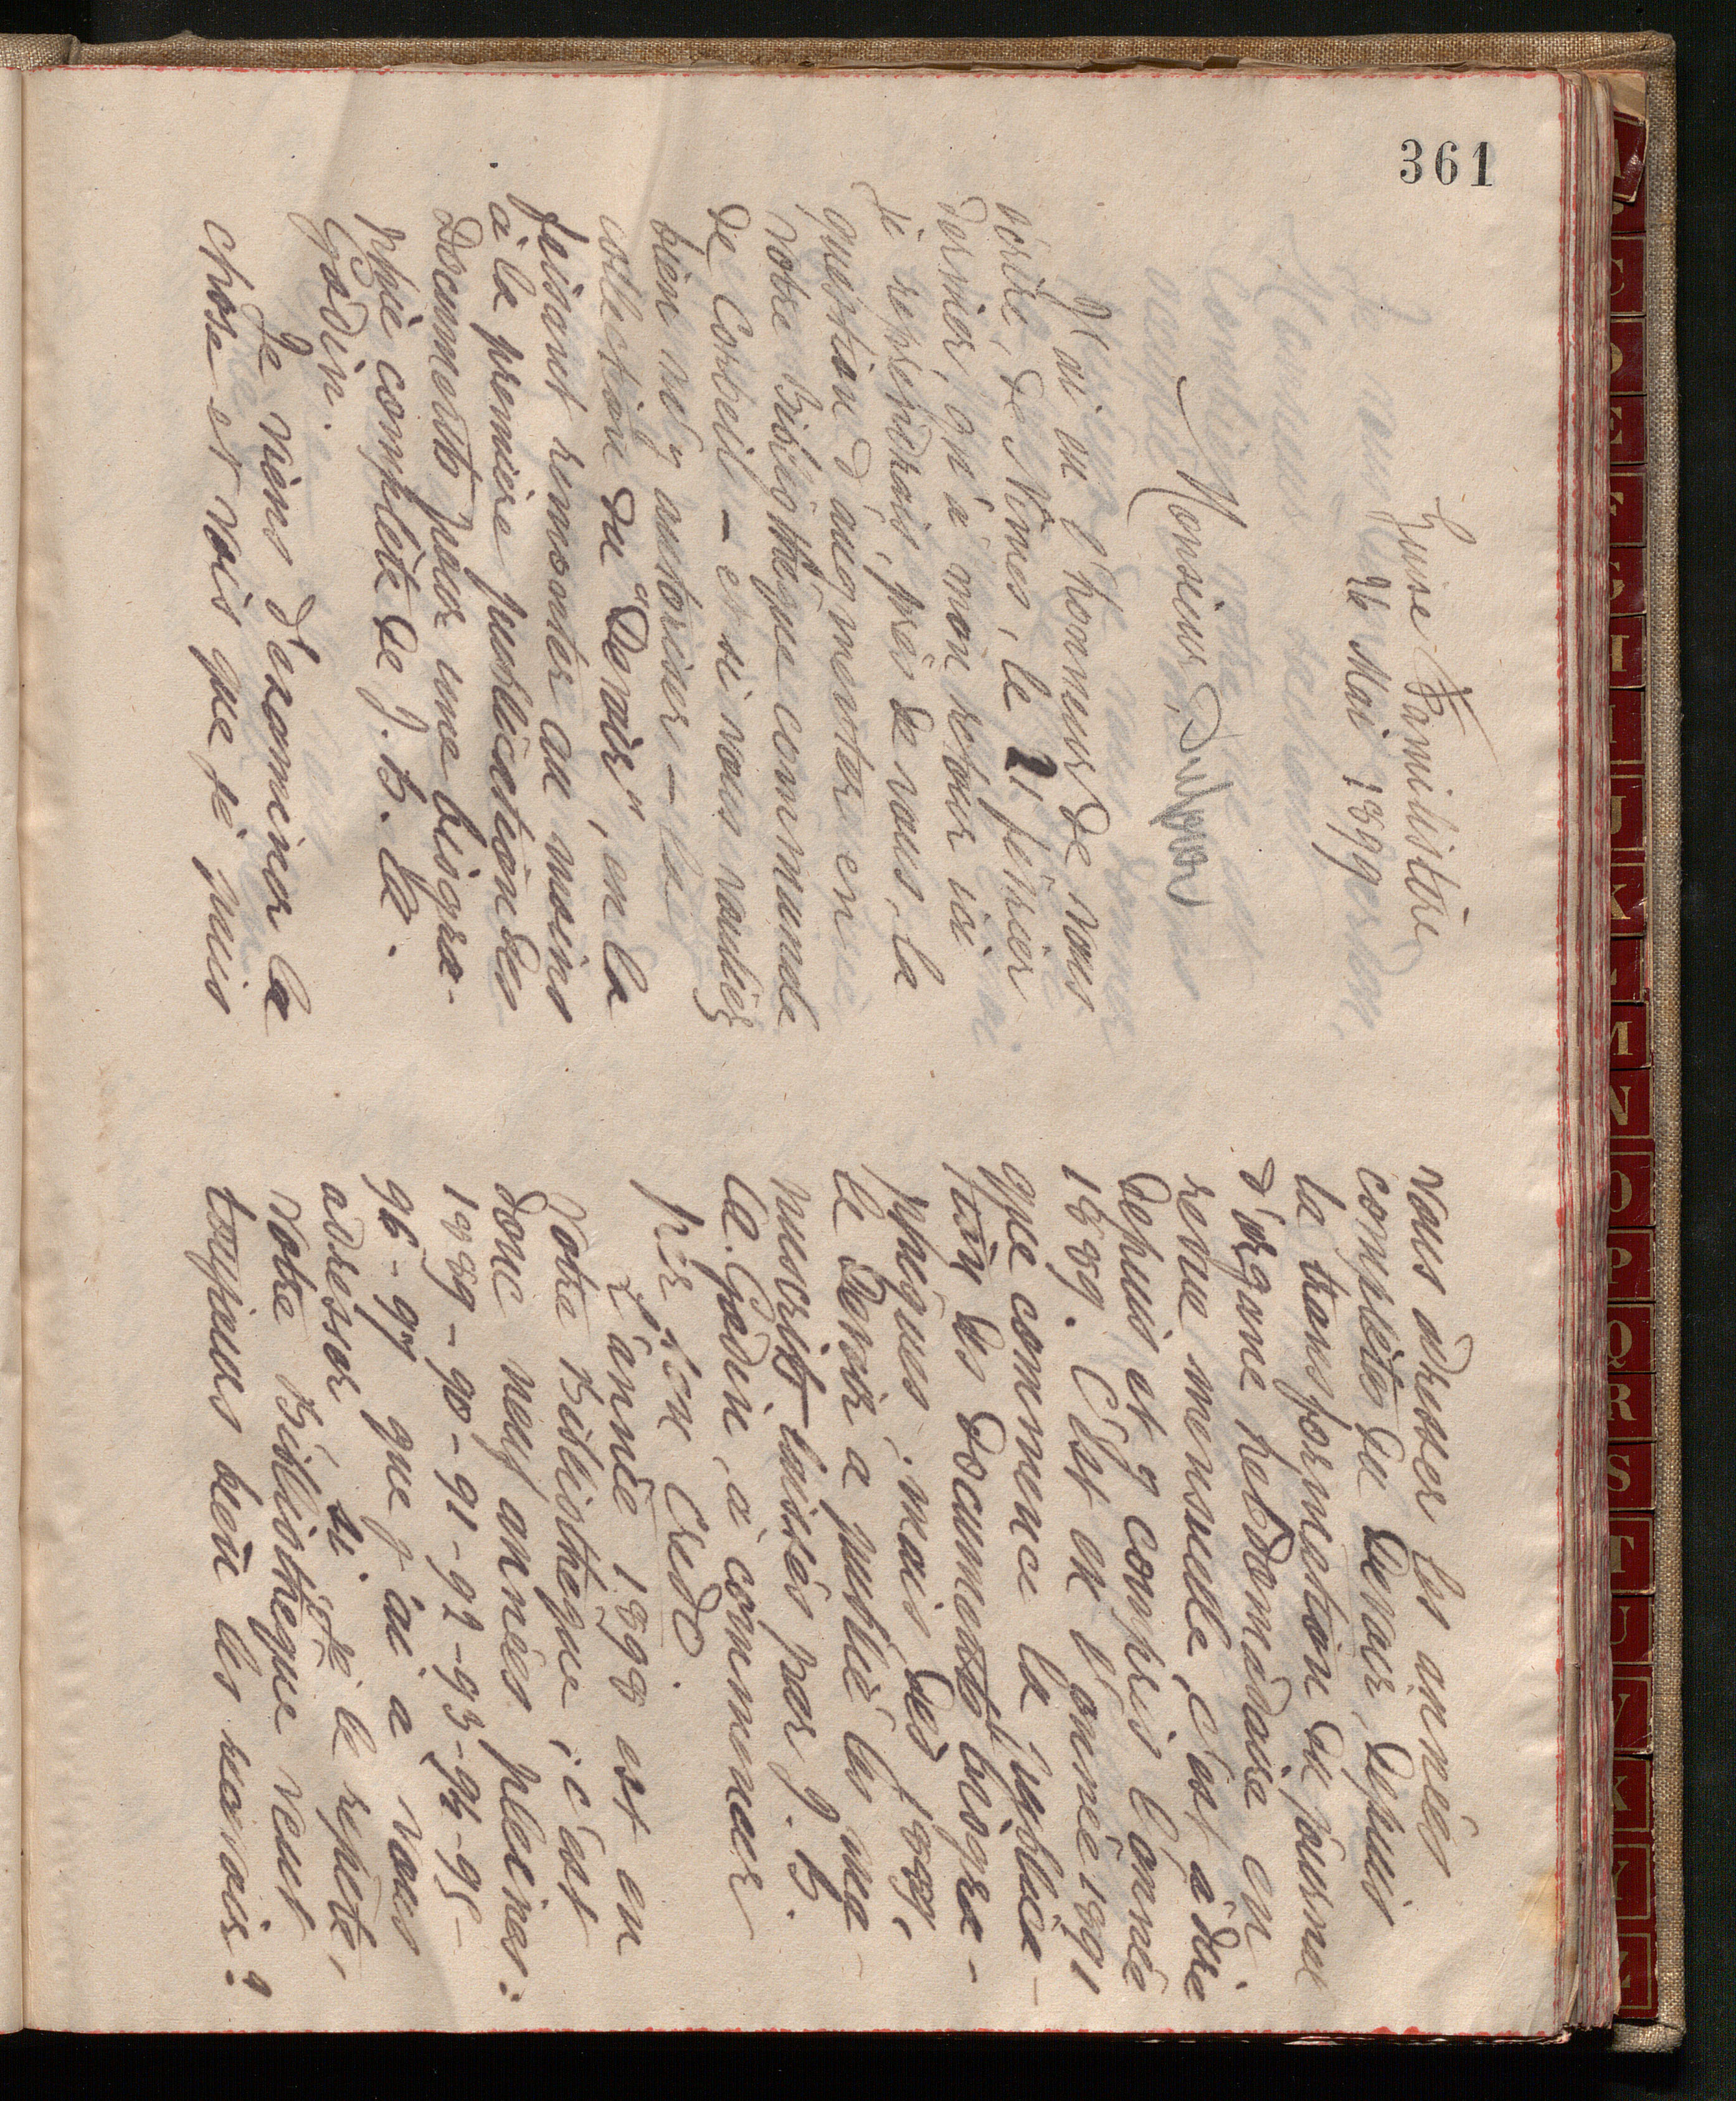 361
Guise Familistère
26 Mai 1899
Monsieur Dufour,
J'ai eu l'honneur de vous
écrire, de Nîmes, le 21 février
dernier, qu'à mon retour ici
je reprendrais, près de vous, la
question d'augmenter en
votre Bibliothèque communale
de Corbeil – et si vous vouliez
bien m'y autoriser – la
collection du "Devoir", en la
faisant remonter au moins
à la première publication des
Documents pour une biogra-
phie complète de J. B. A.
Godin.
Je viens d'examiner la
chose et vois que je puis
vous adresser les années
complètes du Devoir, depuis
la transformation du journal
d'organe hebdomadaire en
revue mensuelle, c'est à dire
depuis et y compris l'année
1889. C'est en l'année 1891
que commence la publica-
tion des Documents biogra-
phiques, mais dès 1889,
le Devoir a publié les ma-
nuscrits laissés par J. B.
A. Godin, à commencer
par son Credo.
L'année 1898 est en
votre Bibliothèque ; c'est
donc neuf années pleines :
1889 - 90 - 91 - 92 - 93 - 94 - 95 -
96 - 97 que j'ai à vous
adresser si, je le répète,
votre Bibliothèque veut
toujours bien les recevoir ?